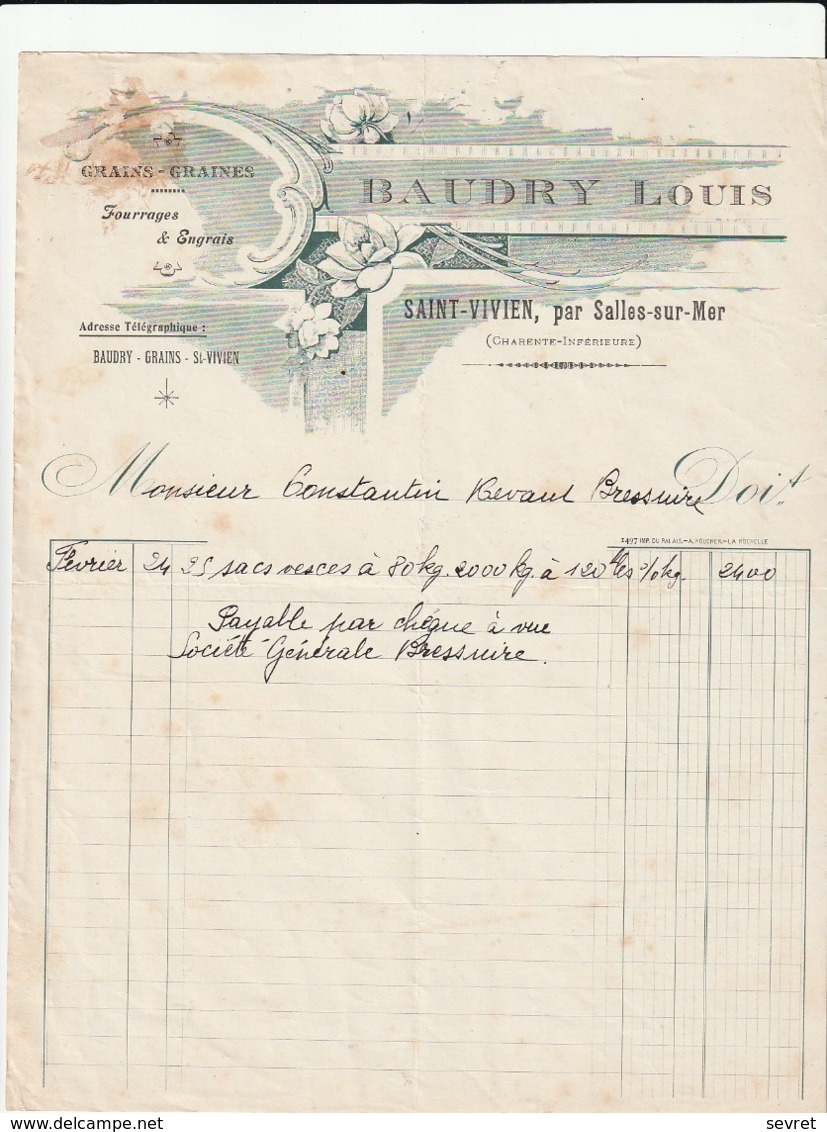 GRAINS - GRAINES
Fourrages
& Engrais
BAUDRY LOUIS
SAINT-VIVIEN, par Salles-sur-Mer
(CHARENTE-INFÉRIEURE)
Adresse Télégraphique :
BAUDRY - GRAINS - St-VIVIEN
Monsieur Constantin Revaul Bressuire Doit
1497 IMP. DU PALAIS.-A. FOUCHER.-LA ROCHELLE
Février 24 25 sacs vesces à 80 kg. 2000 kg. à 120 les % kg. 2400
Payable par chéque à vue
Société Générale Bressuire.
delcampe.net
sevret